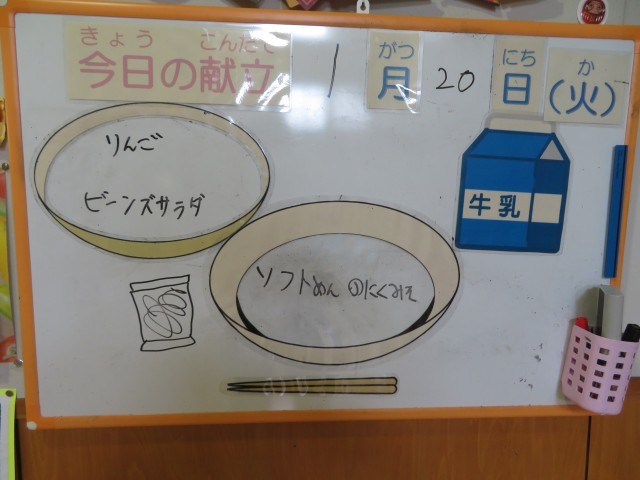 きょう こんだて
今日の献立
1
がつ
月
20
にち
日
か
(火)
りんご
ビーンズサラダ
牛乳
ソフトめん のにくみそ